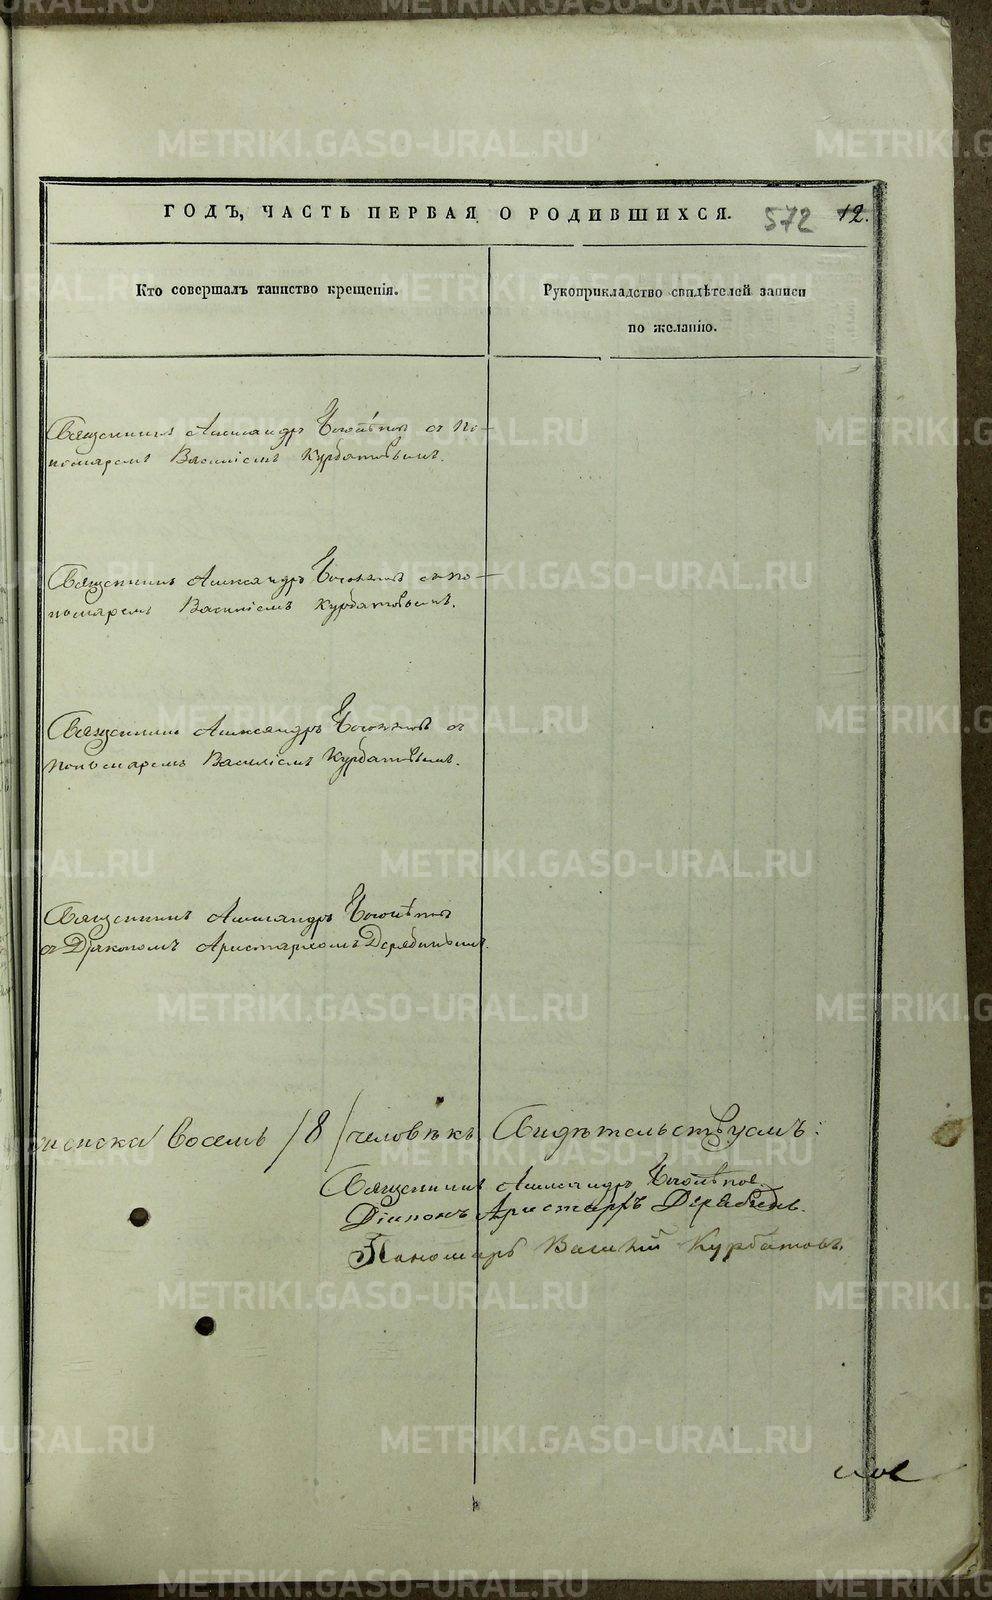 ГОДЪ, ЧАСТЬ ПЕРВАЯ О РОДИВШИХСЯ. 572 12.
Кто совершалъ таинство крещенія.
Рукоприкладство свидѣтелей записи
по желанію.
Священникъ Александръ съ По-
номаремъ Василіемъ Курбатовымъ.
Священникъ Александръ съ по-
номаремъ Василіемъ Курбатовымъ.
Священникъ Александръ съ
пономаремъ Василіемъ Курбатовымъ.
Священникъ Александръ
съ Діакономъ Аристархомъ Дерябинымъ.
женска восемь /8/ человѣкъ Свидѣтельствуемъ:
Священникъ Александръ
Діаконъ Аристархъ Дерябинъ.
Пономарь Василій Курбатовъ.
METRIKI.GASO-URAL.RU